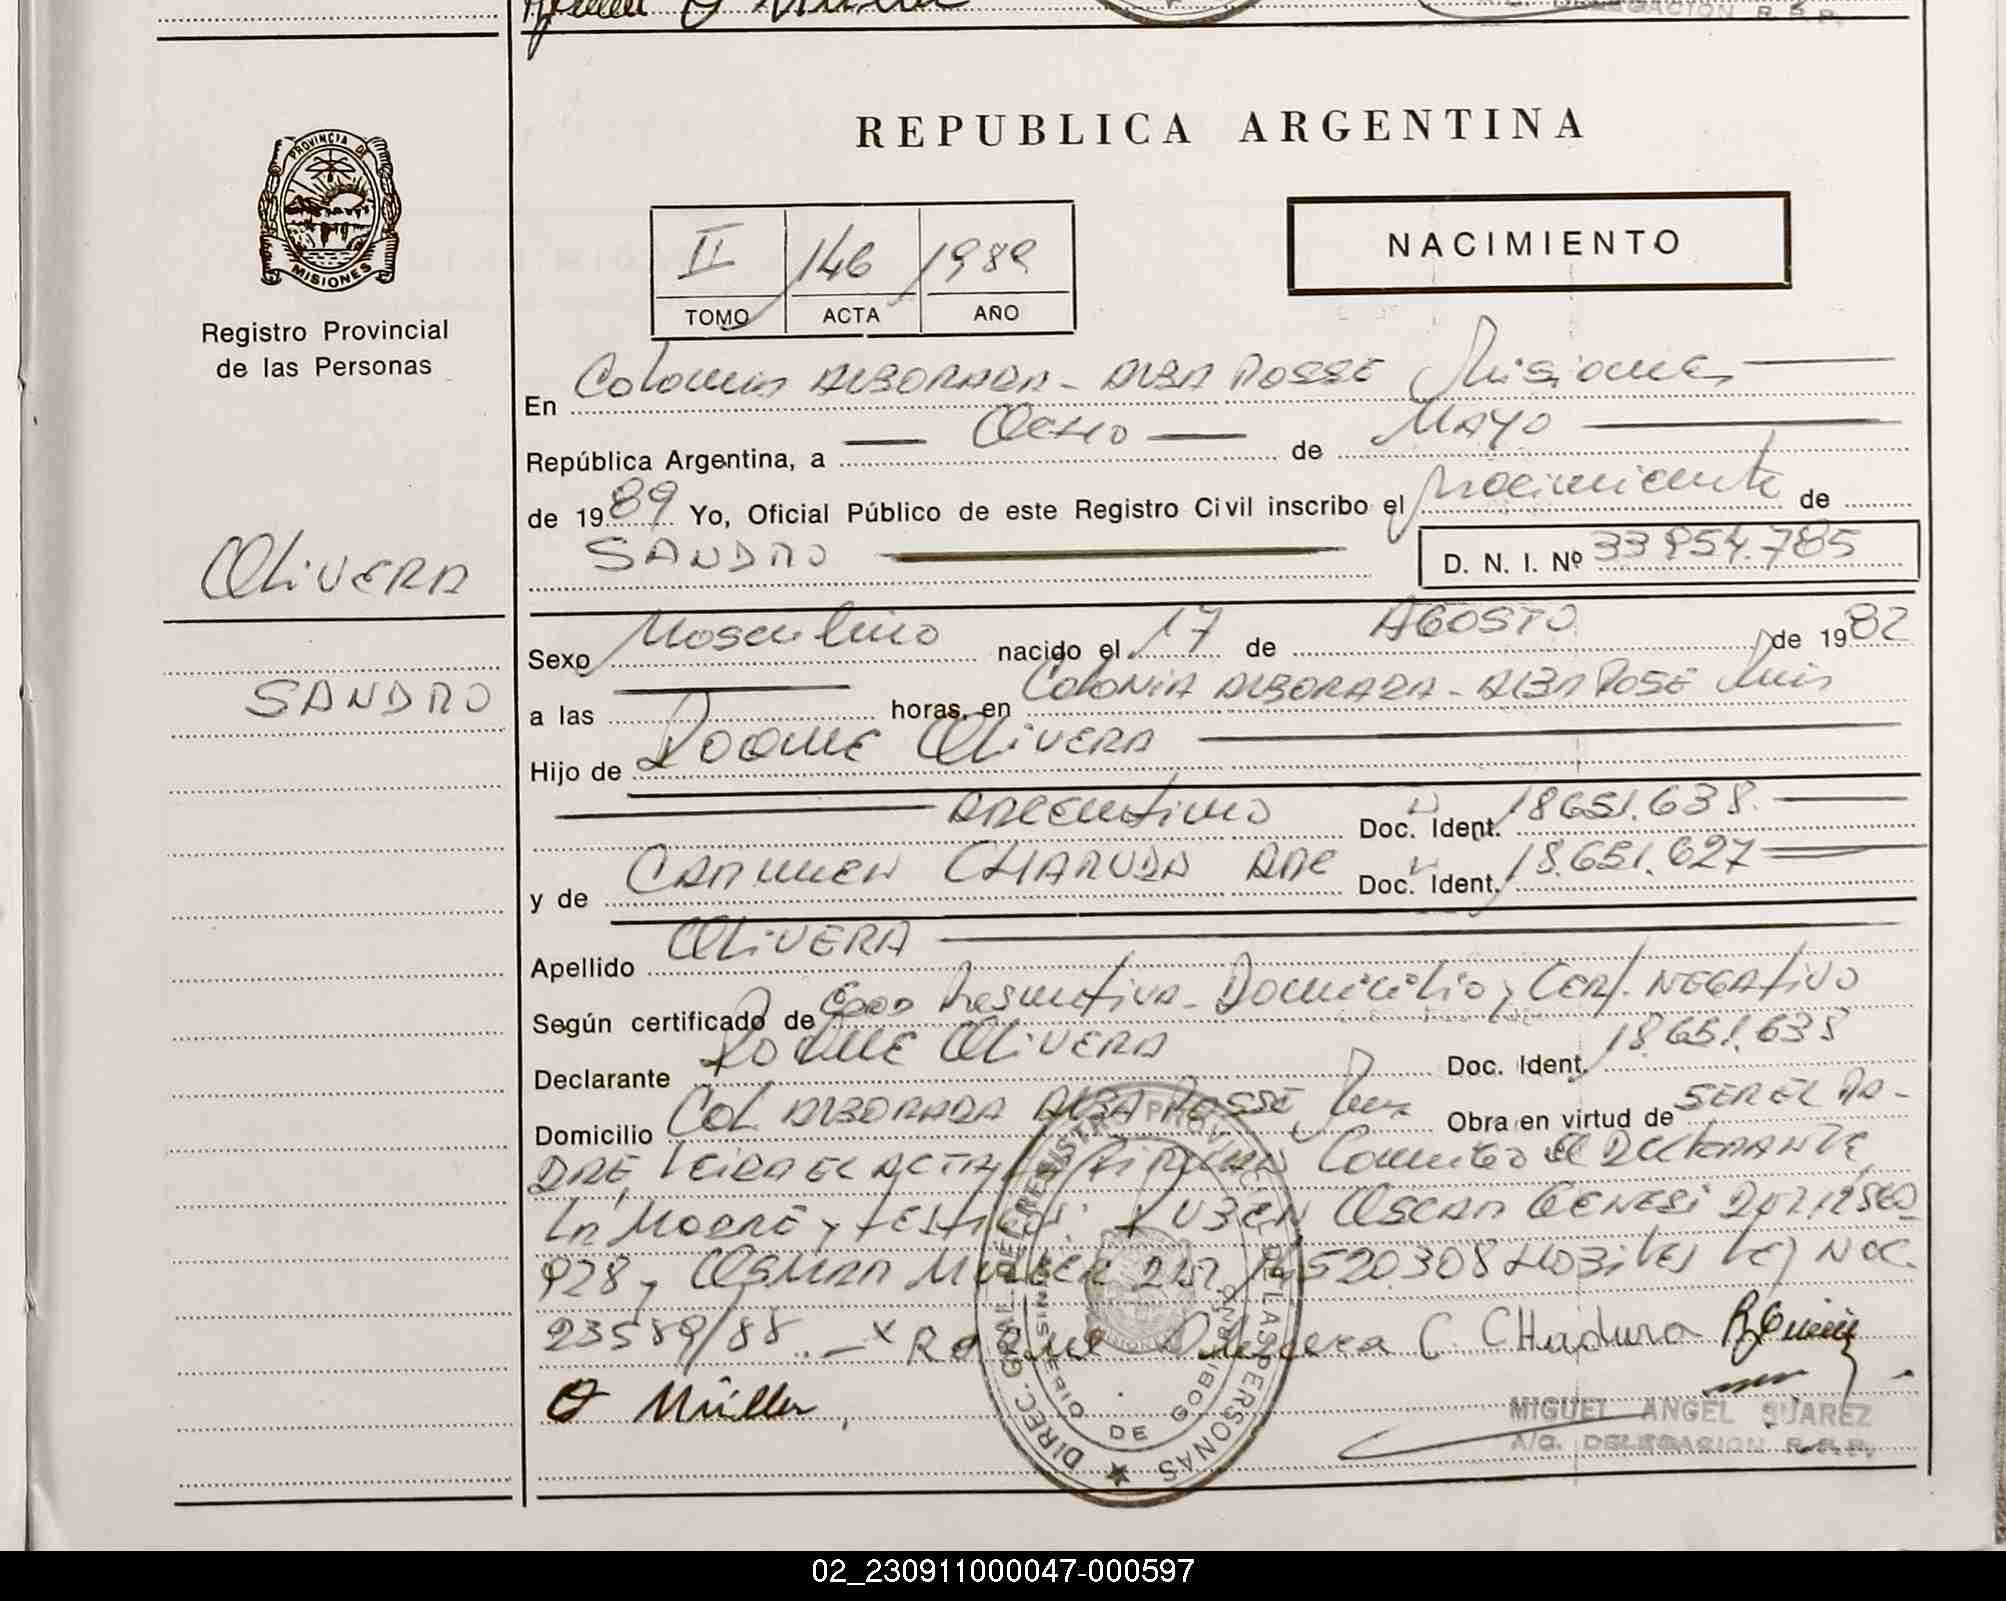 REPUBLICA ARGENTINA
PROVINCIA DE
MISIONES
Registro Provincial
de las Personas
NACIMIENTO
II 146 1989
TOMO ACTA AÑO
En Colonia ALBORADA - ALBA POSSE Misiones
República Argentina, a Ocho de MAYO
de 1989 Yo, Oficial Público de este Registro Civil inscribo el Nacimiento de
SANDRO D. N. I. Nº 33.954.785
OLiVERA
SANDRO
Sexo Masculino nacido el 17 de AGOSTO de 1982
a las horas, en Colonia ALBORADA - ALBA POSE Mis
Hijo de ROQUE OLiVERA
ARGENtiNO Doc. Ident. 18651.638
y de CARMEN ARG Doc. Ident. 18.651.627
Apellido OLiVERA
Según certificado de Edad Presuntiva - Domicilio y Cert. NEGAtivo
Declarante ROQUE OLiVERA Doc. Ident. 18.651.638
Domicilio COL ALBORADA ALBA POSSE Mis Obra en virtud de SER EL PA-
DRE, LEIDA EL ACTA FIRMAN Conmigo El DECLARANTE,
LA MADRE y TESTIGOS: RUBEN OSCAR
928 y OSMAR MULLER 14520308
23589/88 - x Roque Olivera C CHadura
O Müller
DIREC. GRAL. DEL REGISTRO PROVINCIAL DE LAS PERSONAS
MINISTERIO DE GOBIERNO
MIGUEL ANGEL SUAREZ
A/C. DELEGACION R.P.P.
02_230911000047-000597